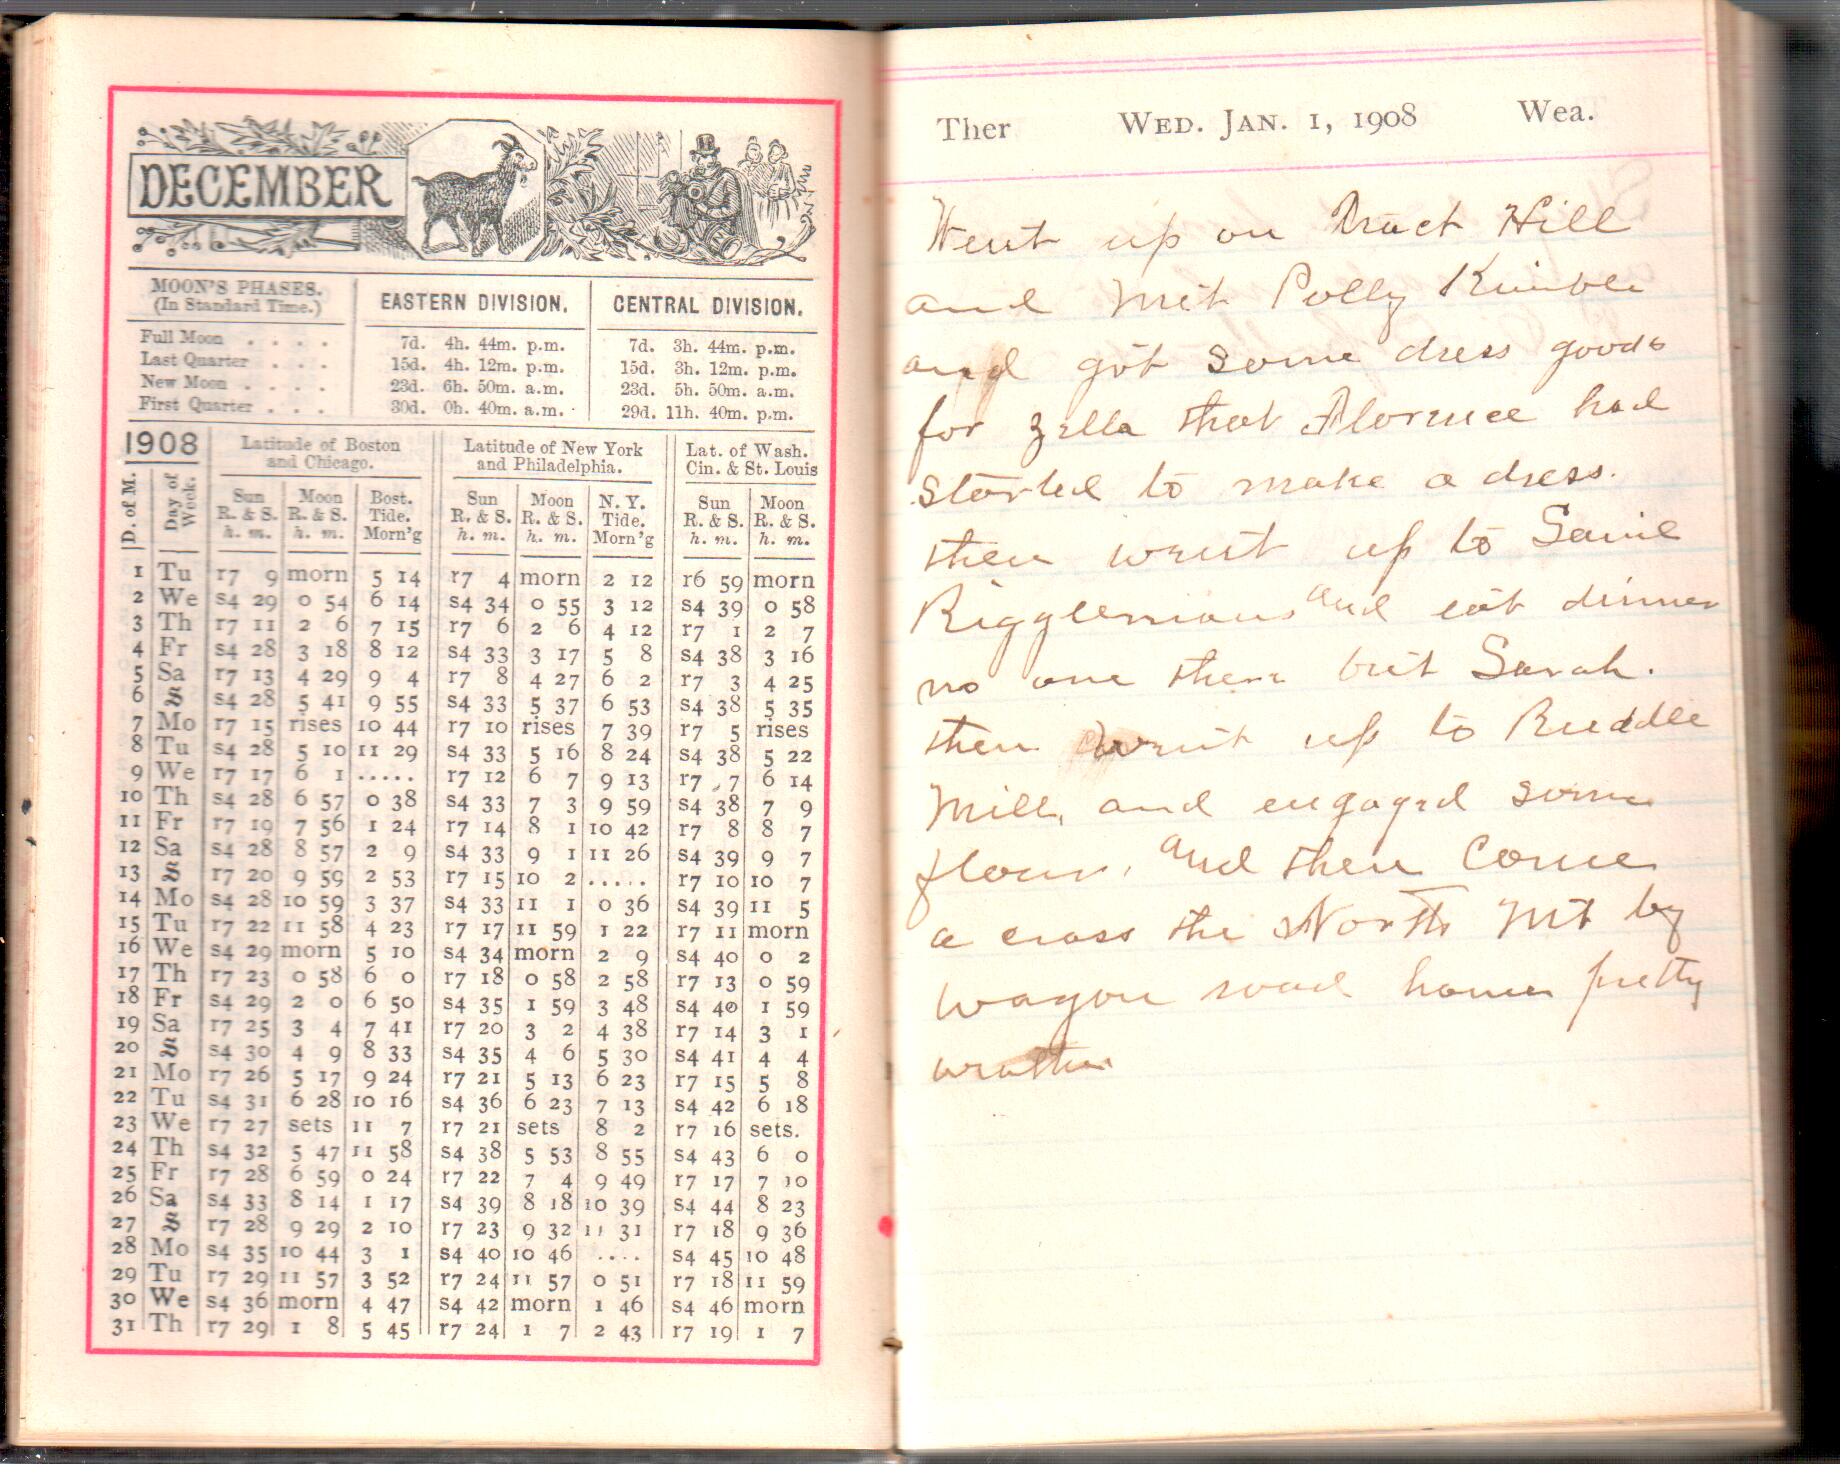 DECEMBER
MOON'S PHASES. (In Standard Time.) EASTERN DIVISION. CENTRAL DIVISION.
Full Moon . . . . 7d. 4h. 44m. p.m. 7d. 3h. 44m. p.m.
Last Quarter . . . 15d. 4h. 12m. p.m. 15d. 3h. 12m. p.m.
New Moon . . . . 23d. 6h. 50m. a.m. 23d. 5h. 50m. a.m.
First Quarter . . . 30d. 0h. 40m. a.m. 29d. 11h. 40m. p.m.
1908 Latitude of Boston and Chicago. Latitude of New York and Philadelphia. Lat. of Wash. Cin. & St. Louis
D. of M. Day of Week. Sun R. & S. h. m. Moon R. & S. h. m. Bost. Tide. Morn'g Sun R. & S. h. m. Moon R. & S. h. m. N. Y. Tide. Morn'g Sun R. & S. h. m. Moon R. & S. h. m.
1 Tu r7 9 morn 5 14 r7 4 morn 2 12 r6 59 morn
2 We s4 29 0 54 6 14 s4 34 0 55 3 12 s4 39 0 58
3 Th r7 11 2 6 7 15 r7 6 2 6 4 12 r7 1 2 7
4 Fr s4 28 3 18 8 12 s4 33 3 17 5 8 s4 38 3 16
5 Sa r7 13 4 29 9 4 r7 8 4 27 6 2 r7 3 4 25
6 S s4 28 5 41 9 55 s4 33 5 37 6 53 s4 38 5 35
7 Mo r7 15 rises 10 44 r7 10 rises 7 39 r7 5 rises
8 Tu s4 28 5 10 11 29 s4 33 5 16 8 24 s4 38 5 22
9 We r7 17 6 1 ..... r7 12 6 7 9 13 r7 7 6 14
10 Th s4 28 6 57 0 38 s4 33 7 3 9 59 s4 38 7 9
11 Fr r7 19 7 56 1 24 r7 14 8 1 10 42 r7 8 8 7
12 Sa s4 28 8 57 2 9 s4 33 9 1 11 26 s4 39 9 7
13 S r7 20 9 59 2 53 r7 15 10 2 ..... r7 10 10 7
14 Mo s4 28 10 59 3 37 s4 33 11 1 0 36 s4 39 11 5
15 Tu r7 22 11 58 4 23 r7 17 11 59 1 22 r7 11 morn
16 We s4 29 morn 5 10 s4 34 morn 2 9 s4 40 0 2
17 Th r7 23 0 58 6 0 r7 18 0 58 2 58 r7 13 0 59
18 Fr s4 29 2 0 6 50 s4 35 1 59 3 48 s4 40 1 59
19 Sa r7 25 3 4 7 41 r7 20 3 2 4 38 r7 14 3 1
20 S s4 30 4 9 8 33 s4 35 4 6 5 30 s4 41 4 4
21 Mo r7 26 5 17 9 24 r7 21 5 13 6 23 r7 15 5 8
22 Tu s4 31 6 28 10 16 s4 36 6 23 7 13 s4 42 6 18
23 We r7 27 sets 11 7 r7 21 sets 8 2 r7 16 sets.
24 Th s4 32 5 47 11 58 s4 38 5 53 8 55 s4 43 6 0
25 Fr r7 28 6 59 0 24 r7 22 7 4 9 49 r7 17 7 10
26 Sa s4 33 8 14 1 17 s4 39 8 18 10 39 s4 44 8 23
27 S r7 28 9 29 2 10 r7 23 9 32 11 31 r7 18 9 36
28 Mo s4 35 10 44 3 1 s4 40 10 46 .... s4 45 10 48
29 Tu r7 29 11 57 3 52 r7 24 11 57 0 51 r7 18 11 59
30 We s4 36 morn 4 47 s4 42 morn 1 46 s4 46 morn
31 Th r7 29 1 8 5 45 r7 24 1 7 2 43 r7 19 1 7
Ther WED. JAN. 1, 1908 Wea.
Went up on Tract Hill
and Met Polly Kimble
and got some dress goods
for Zella that Florence had
started to make a dress.
then went up to Samie
Rigglemans and eat dinner
no one there but Sarah.
then went up to Ruddle
Mill, and engaged some
flour, and then Come
a cross the North Mt by
wagon road home pretty
weather